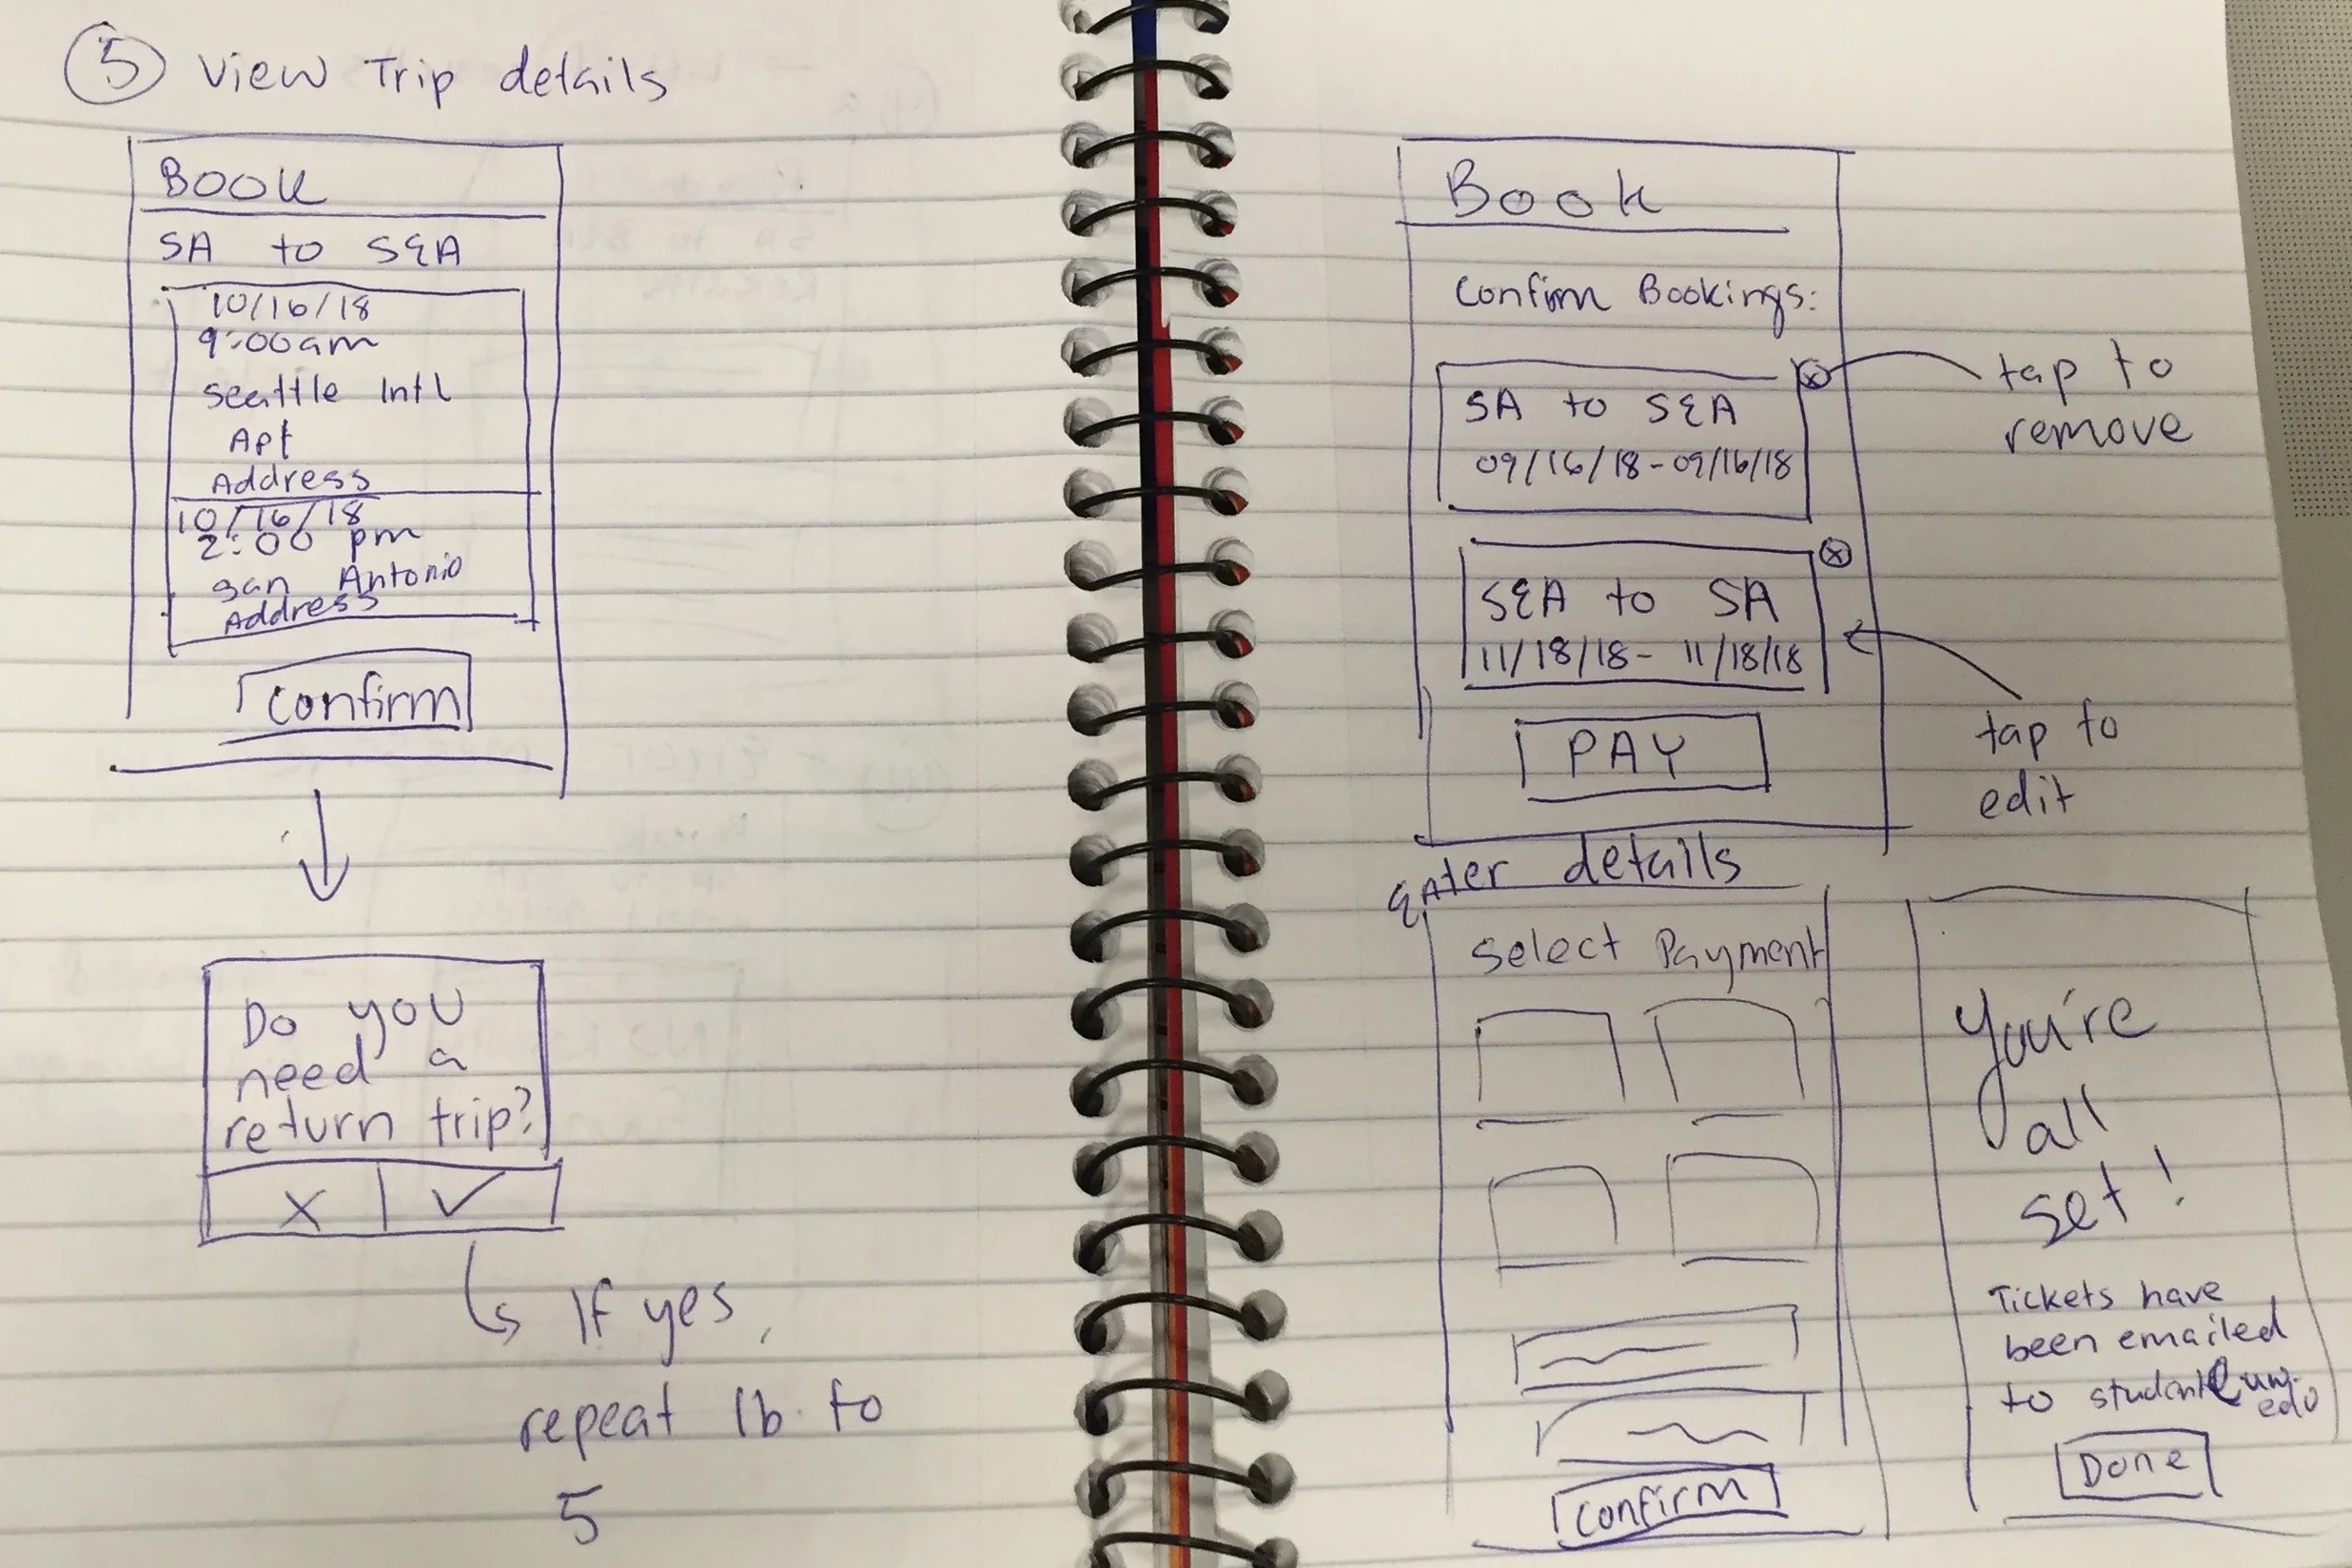 5 View Trip details
BOOK
SA to SEA
10/16/18
9:00am
Seattle Intl
Apt
Address
10/16/18
2:00 pm
San Antonio
Address
Confirm
Do you
need a
return trip?
X ✓
If yes,
repeat 1b to
5
Book
Confirm Bookings:
SA to SEA
09/16/18-09/16/18
tap to
remove
SEA to SA
11/18/18- 11/18/18
PAY
tap to
edit
Enter details
Select Payment
Confirm
You're
all
set!
Tickets have
been emailed
to student@uw.
edu
Done